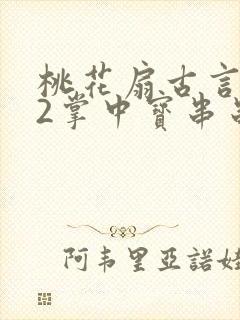 桃花扇古言
2掌中寳串
阿韦里亞諾娃